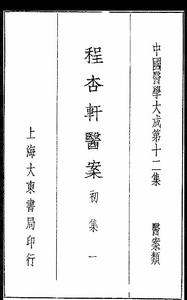 中國醫學大成第十二集　醫案類
程杏軒醫案 初集 一
上海大東書局印行